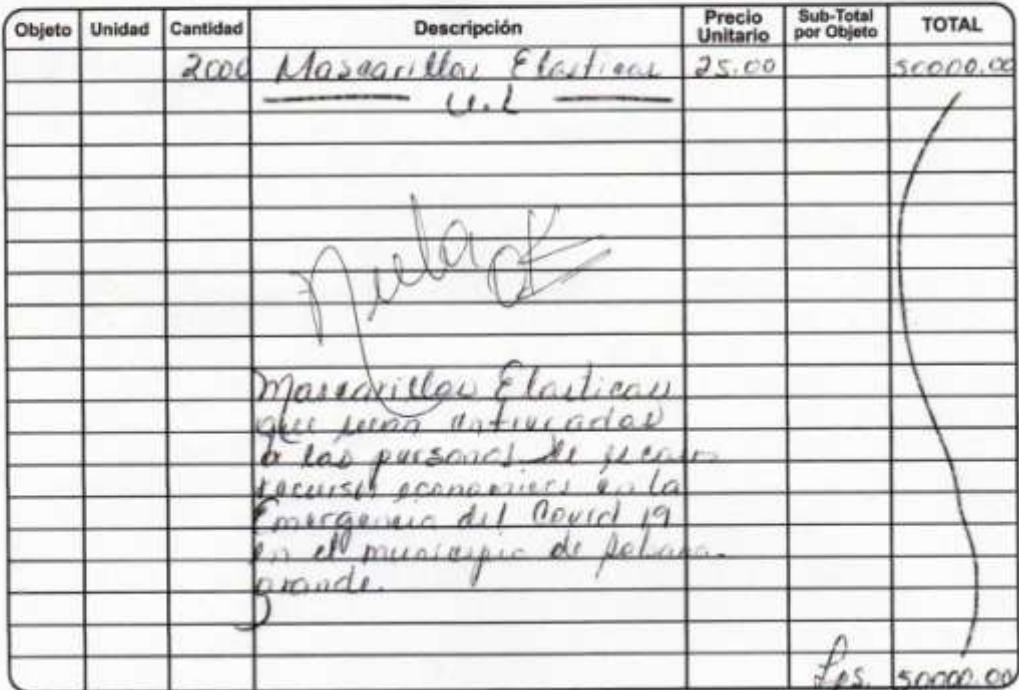 Objeto Unidad Cantidad Descripción Precio Unitario Sub-Total por Objeto TOTAL
2000 Mascarillas Elasticas 25.00 50000.00
U.L
Nula
Mascarillas Elasticas
que seran entregadas
a las personas de escasos
recursos economicos en la
Emergencia del Covid 19
en el municipio de Sabana-
grande.
Lps. 50000.00